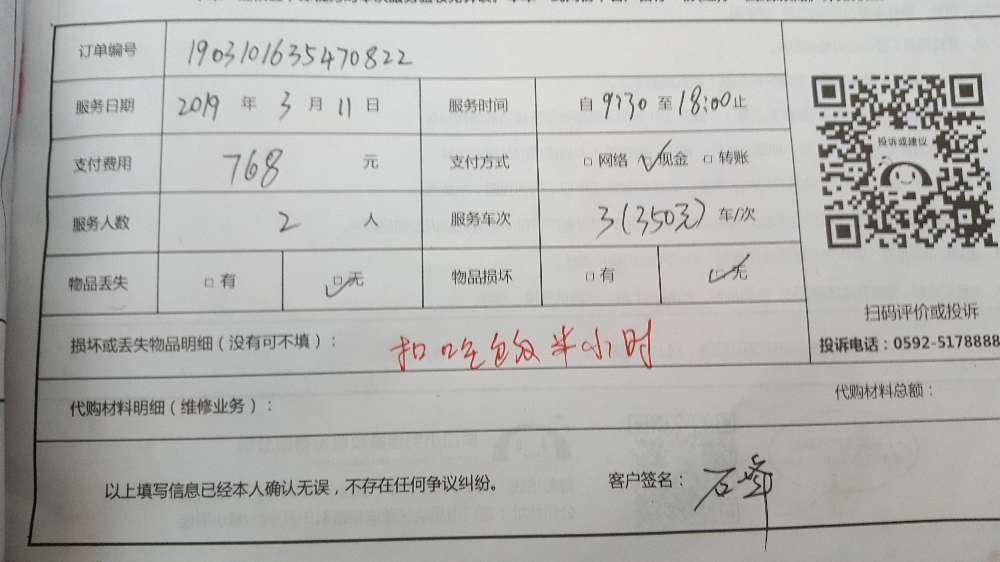 订单编号 1903101635470822
服务日期 2019 年 3 月 11 日 服务时间 自 9:30 至 18:00 止
支付费用 768 元 支付方式 □ 网络 ☑ 现金 □ 转账
投诉或建议
服务人数 2 人 服务车次 3(350元) 车/次
物品丢失 □ 有 ☑ 无 物品损坏 □ 有 ☑ 无
扫码评价或投诉
损坏或丢失物品明细（没有可不填）： 扣吃饭半小时
投诉电话：0592-5178888
代购材料明细（维修业务）： 代购材料总额：
以上填写信息已经本人确认无误，不存在任何争议纠纷。 客户签名：